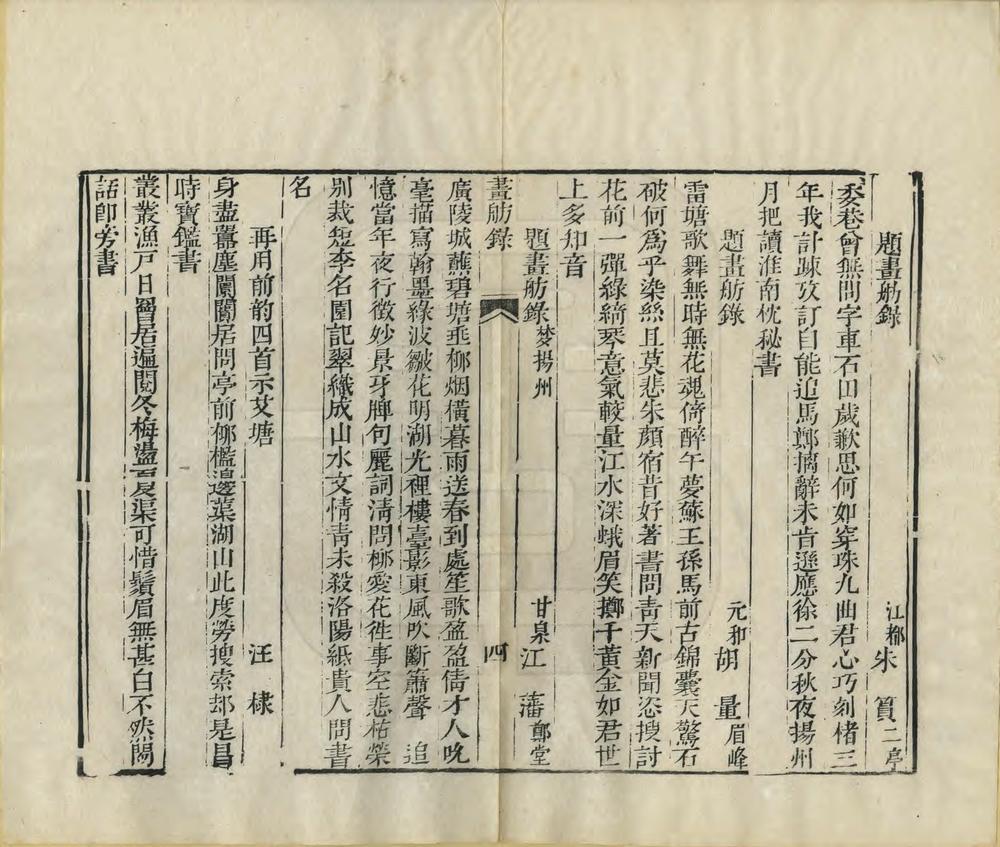 題畫舫錄 江都朱 篔二亭
委巷曾無問字車石田歲歉思何如穿珠九曲君心巧刻楮三
年我計疎攷訂自能追馬鄭摛辭未肯遜應徐二分秋夜揚州
月把讀淮南枕秘書
題畫舫錄 元和胡 量眉峰
雷塘歌舞無時無花魂倚醉午夢蘇王孫馬前古錦囊天驚石
破何爲乎染絲且莫悲朱顏宿昔好著書問靑天新聞恣搜討
花前一彈綠綺琴意氣較量江水深蛾眉笑擲千黃金如君世
上多知音
題畫舫錄夢揚州 甘泉江 藩鄭堂
畫舫錄 四
廣陵城蘸碧塘垂柳烟橫暮雨送春到處笙歌盈盈倩才人晩
毫描寫翰墨綠波皺花明湖光裡樓臺影東風吹斷簫聲 追
憶當年夜行徵妙景牙牌句麗詞淸問柳愛花徃事空悲枯榮
別裁短李名園記翠織成山水文情靑未殺洛陽紙貴人問書
名
再用前韵四首示艾塘 汪 棣
身盡嚚塵闤闠居問亭前柳檻邊蕖湖山此度勞搜索却是昌
時寶鑑書
叢叢漁戸日罾居遍閱冬梅盪夏渠可惜鬚眉無甚白不然閣
話卽旁書